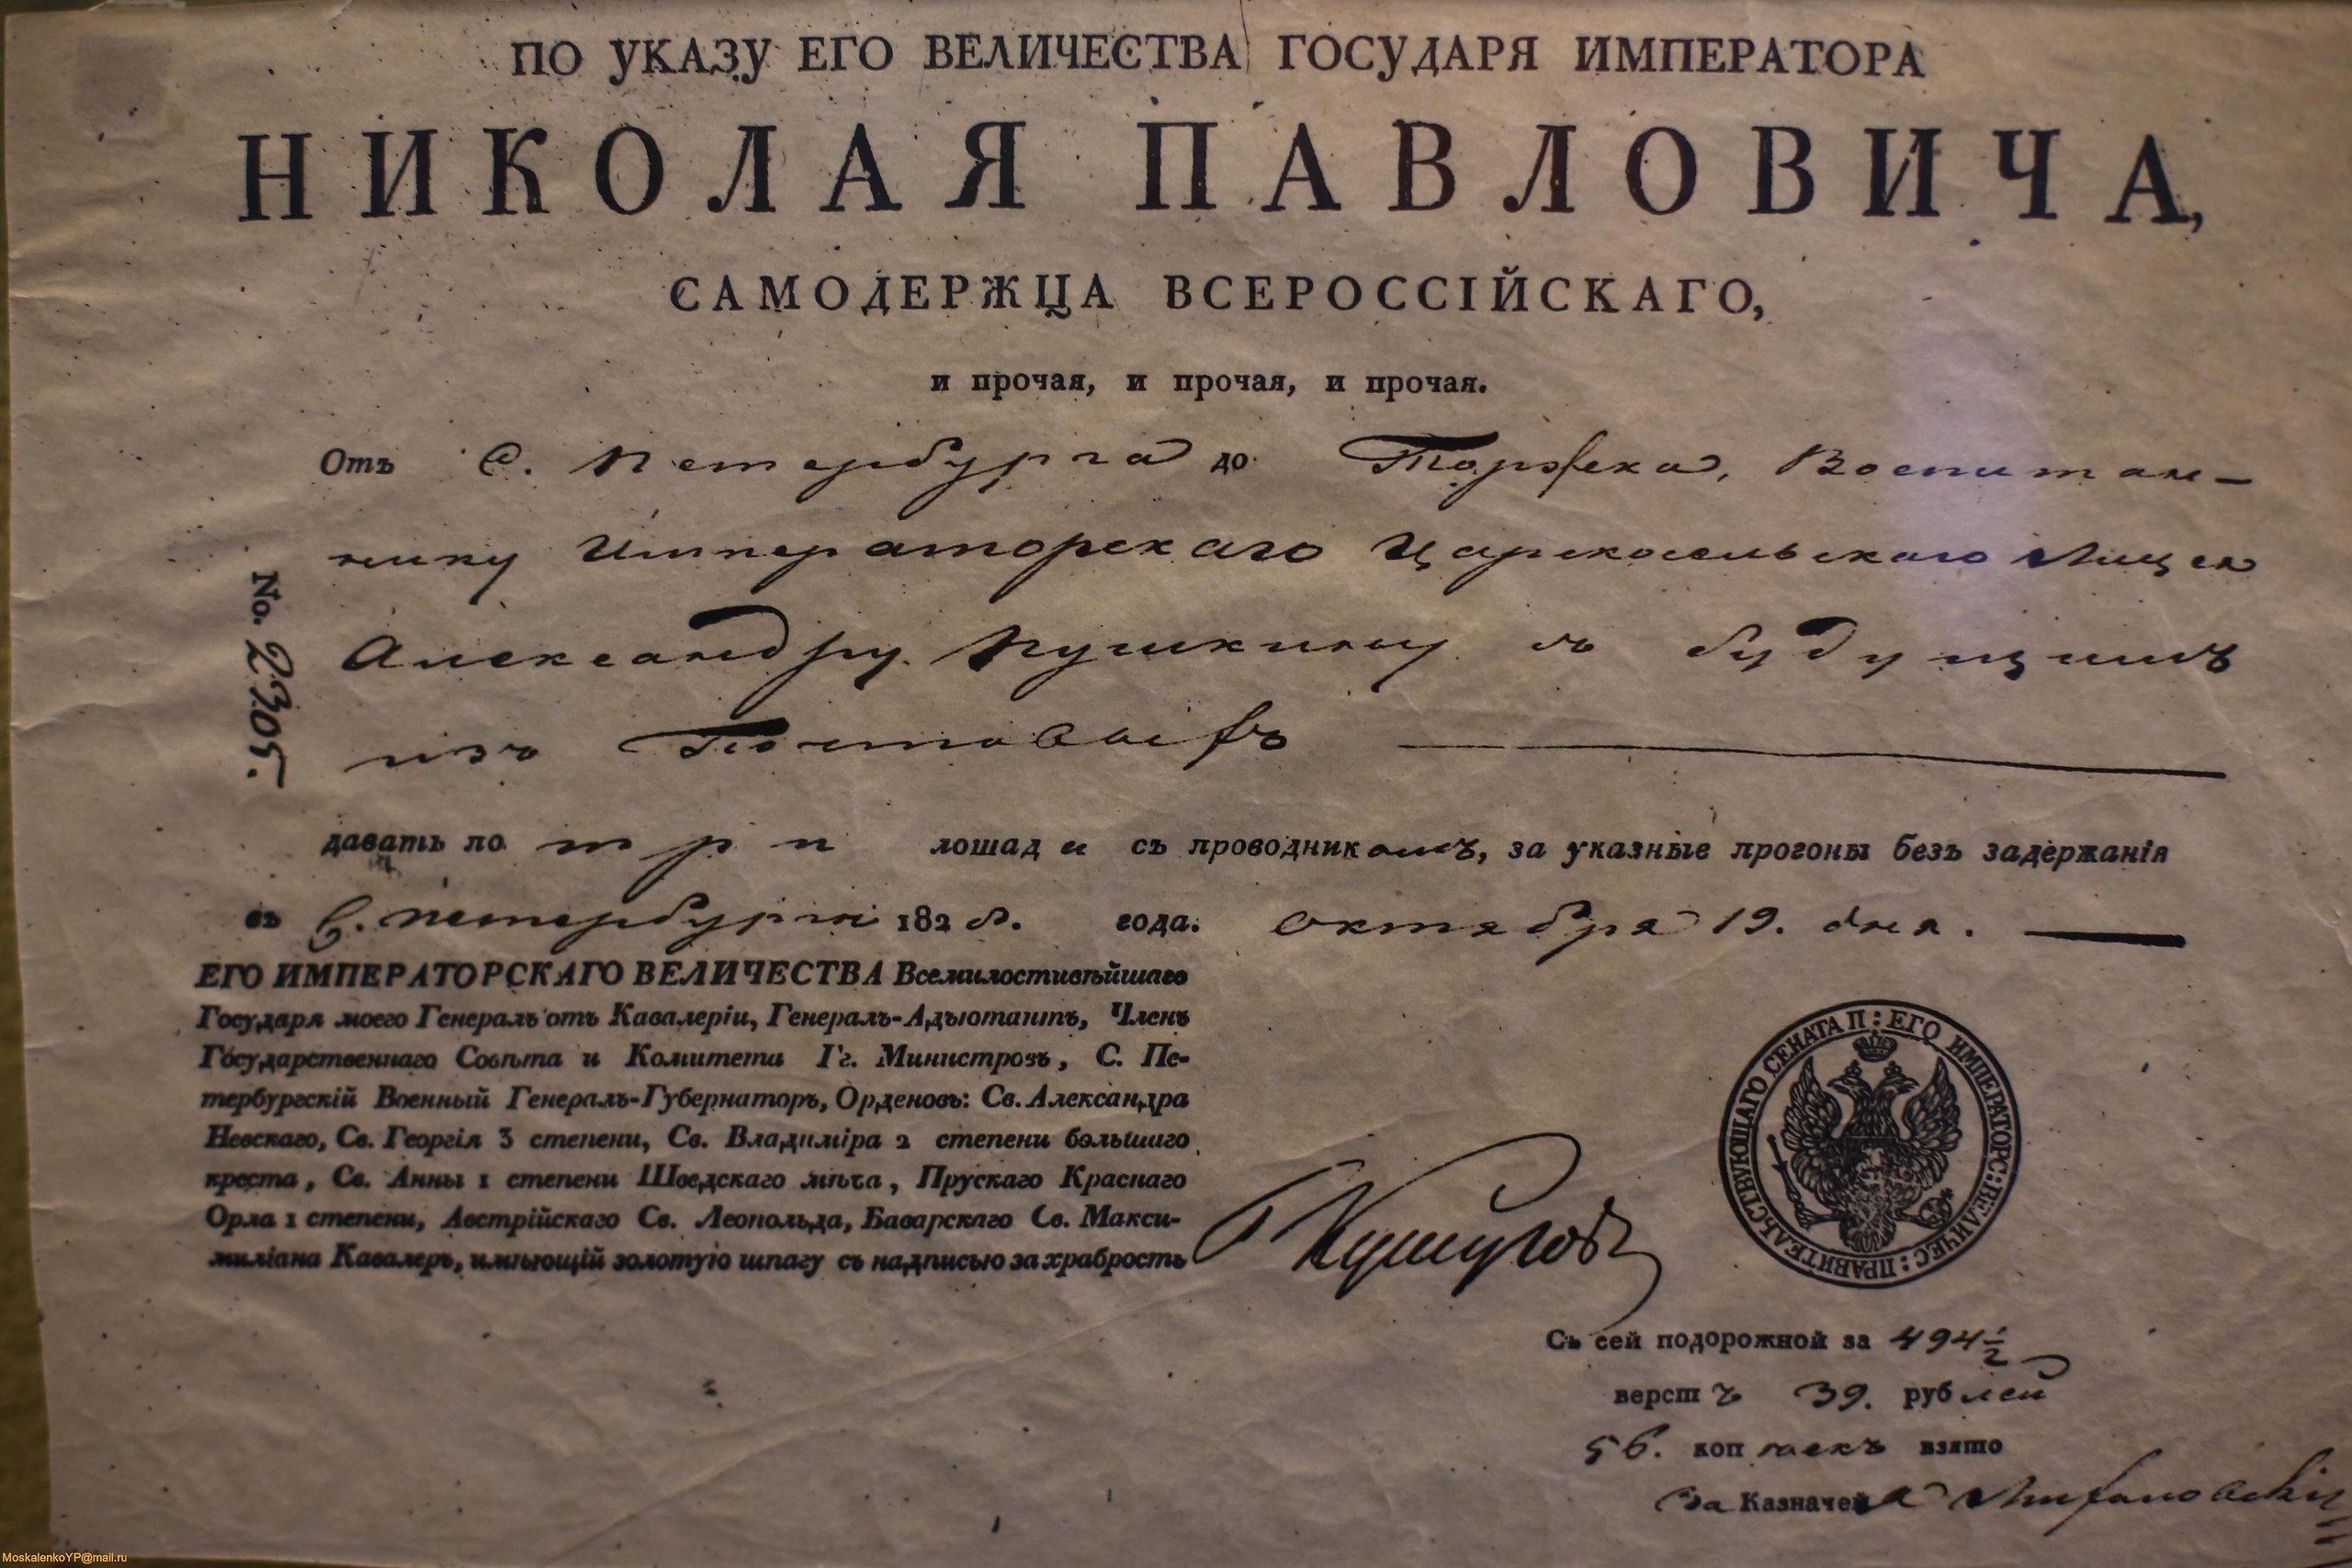 ПО УКАЗУ ЕГО ВЕЛИЧЕСТВА ГОСУДАРЯ ИМПЕРАТОРА
НИКОЛАЯ ПАВЛОВИЧА,
САМОДЕРЖЦА ВСЕРОССІЙСКАГО,
и прочая, и прочая, и прочая.
Отъ С. Петербурга до Торжска, Воспитан-
нику Императорскаго Царскосельскаго Лицея
Александру Пушкину съ будущимъ
изъ Почтовыхъ
No. 2305.
давать по три лошади съ проводникомъ, за указные прогоны безъ задержанія
въ С. Петербургѣ 1828. года. Октября 19. дня.
ЕГО ИМПЕРАТОРСКАГО ВЕЛИЧЕСТВА Всемилостивѣйшаго
Государя моего Генералъ отъ Кавалеріи, Генералъ-Адъютантъ, Членъ
Государственнаго Совѣта и Комитета Гг. Министровъ, С. Пе-
тербургскій Военный Генералъ-Губернаторъ, Орденовъ: Св. Александра
Невскаго, Св. Георгія 3 степени, Св. Владиміра 2 степени большаго
креста, Св. Анны 1 степени Шведскаго меча, Прускаго Краснаго
Орла 1 степени, Австрійскаго Св. Леопольда, Баварскаго Св. Макси-
миліана Кавалеръ, имѣющій золотую шпагу съ надписью за храбрость
ПРАВИТЕЛЬСТВУЮЩАГО СЕНАТА П: ЕГО ИМПЕРАТОРС: ВЕЛИЧЕС:
Съ сей подорожной за 494 1/2
верстъ 39. рублей
56. копѣекъ взято
За Казначея
MoskalenkoYP@mail.ru